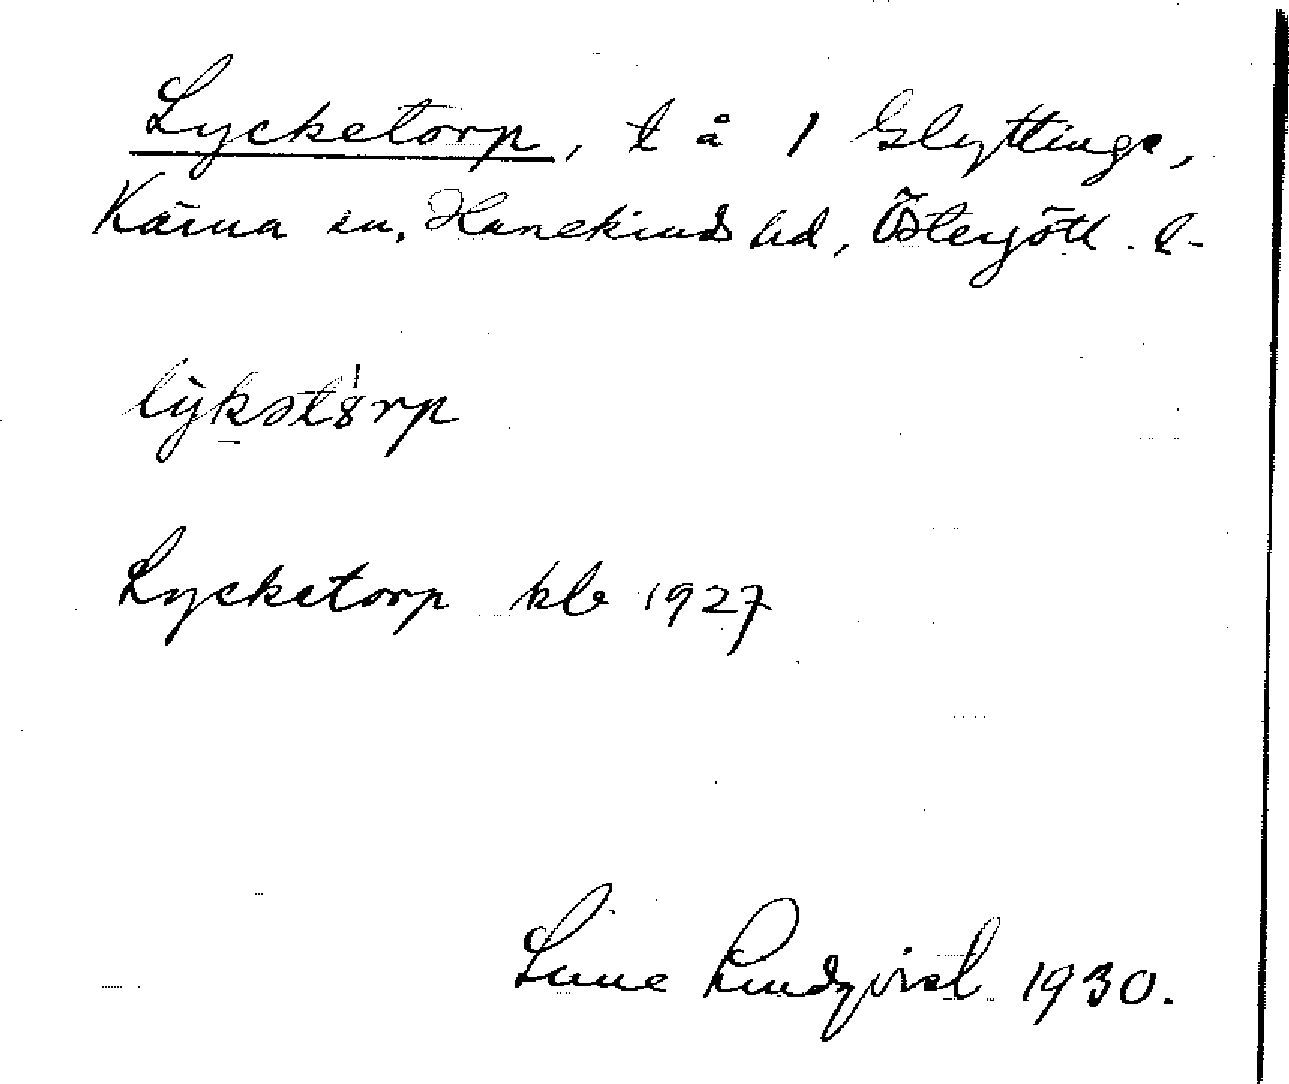 Lycketorp, t å 1 Glyttinge,
Kärna sn, Hanekinds hd, Östergötl. l-
lỳkətòrp
Lycketorp kb 1927
Sune Lindqvist 1930.